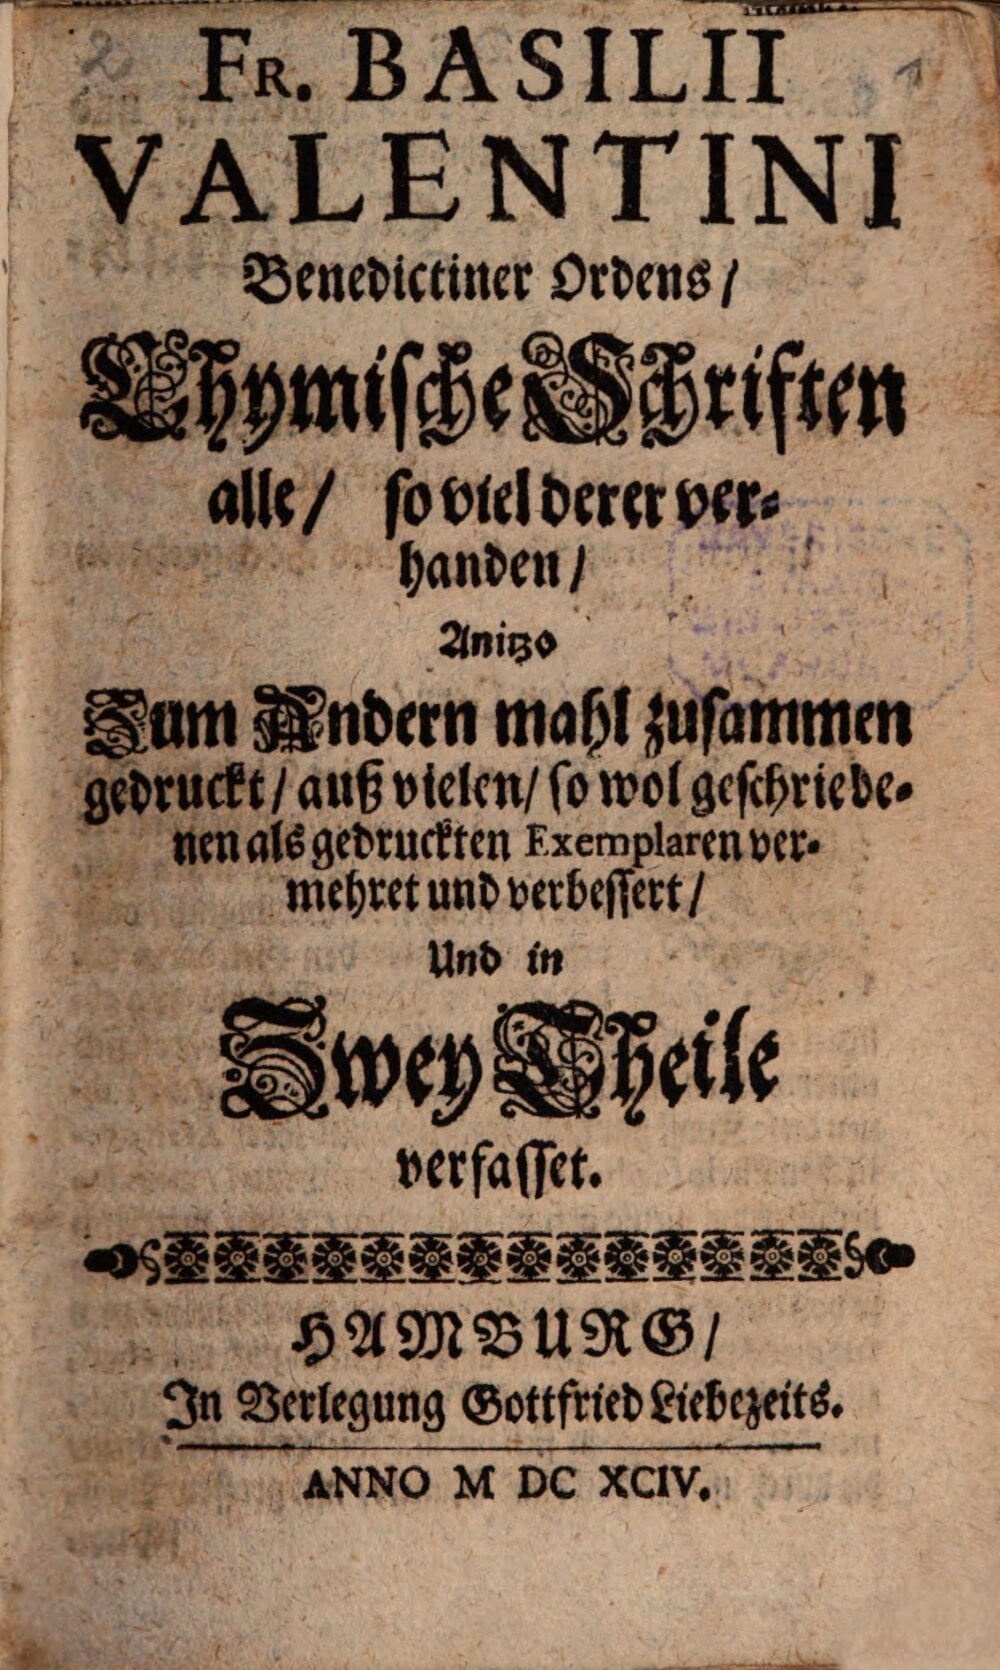 FR. BASILII
VALENTINI
Benedictiner Ordens /
Chymische Schriften
alle / so viel derer ver-
handen /
Anitzo
Zum Andern mahl zusammen
gedruckt / auß vielen / so wol geschriebe-
nen als gedruckten Exemplaren ver-
mehret und verbessert /
Und in
Zwey Theile
verfasset.
HAMBURG /
In Verlegung Gottfried Liebezeits.
ANNO M DC XCIV.